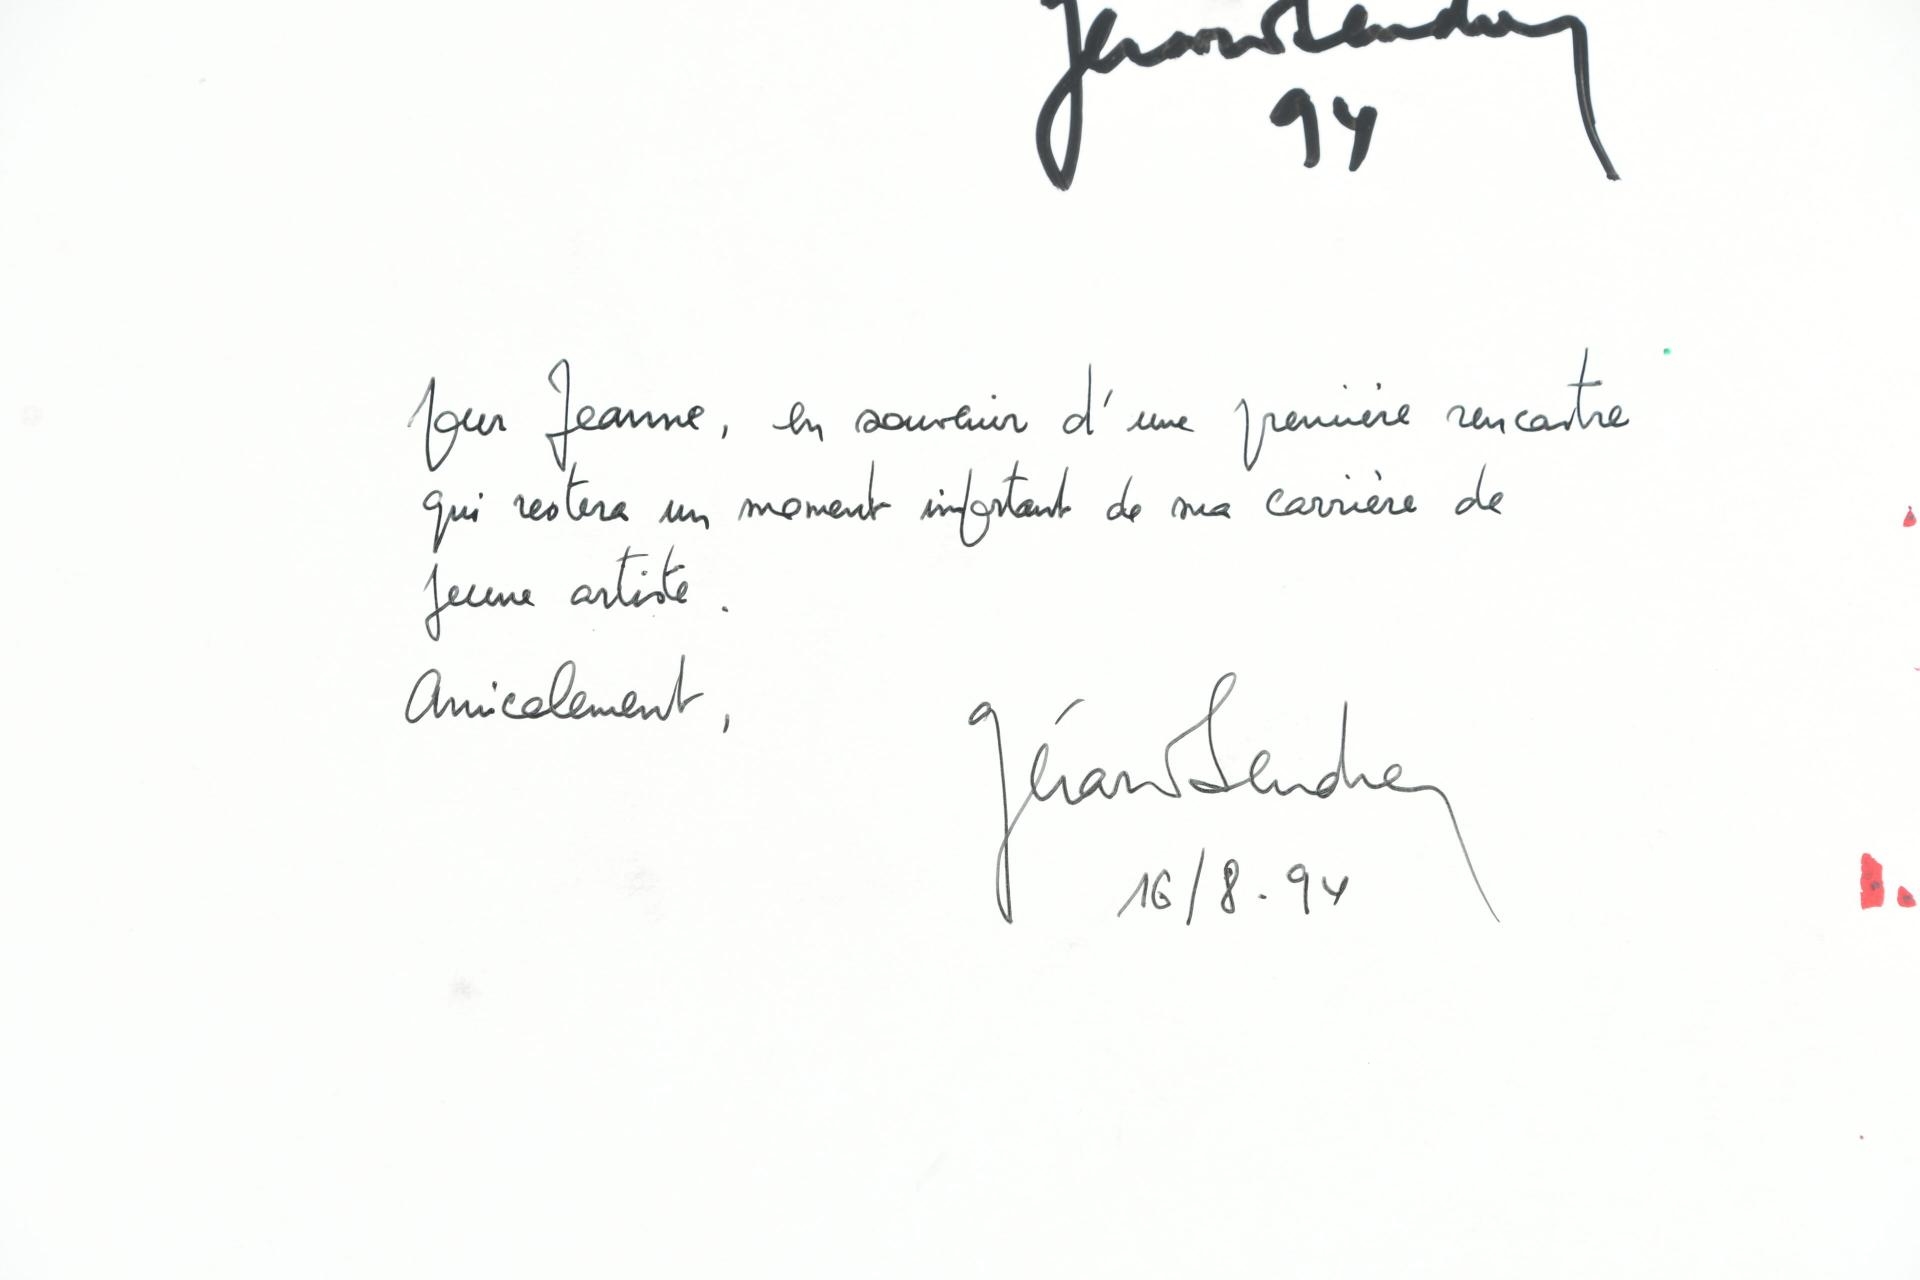 Gérard Lendrey
94
Pour Jeanne, en souvenir d'une première rencontre
qui restera un moment important de ma carrière de
jeune artiste.
Amicalement,
16/8.94